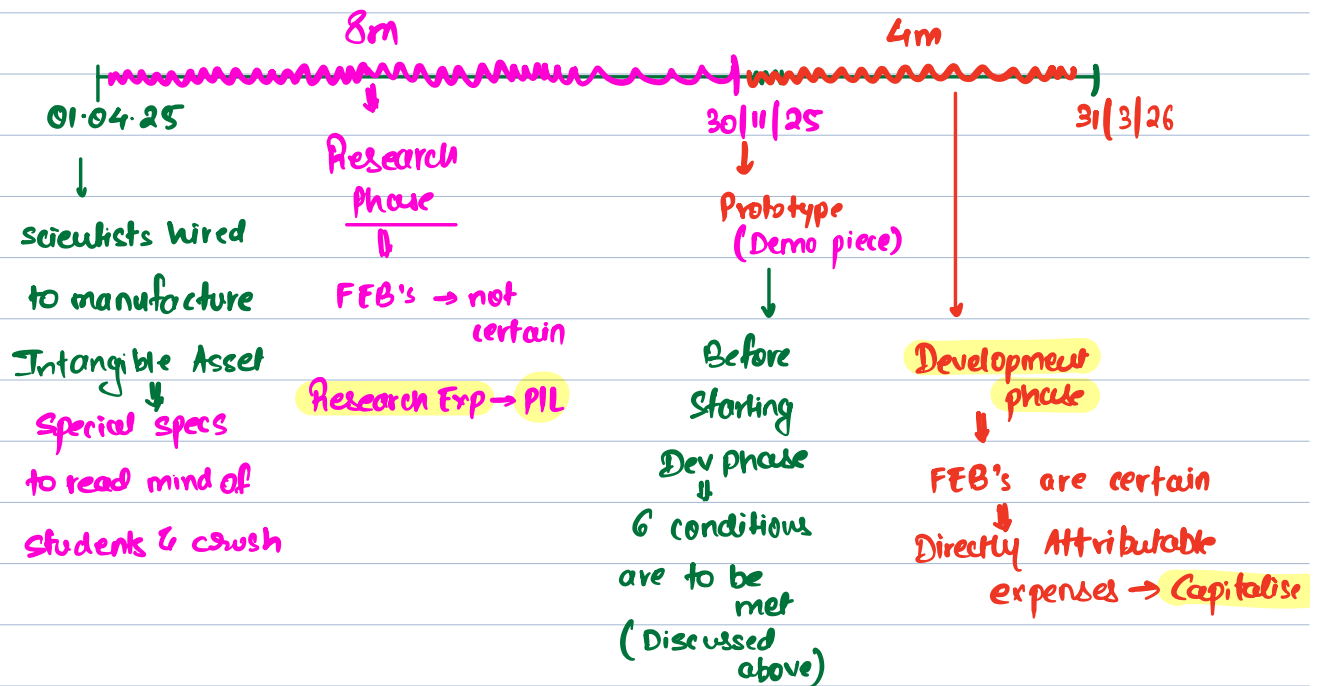 8m
4m
01.04.25
30/11/25
31/3/26
scientists hired
to manufacture
Intangible Asset
Special specs
to read mind of
students & crush
Research
Phase
FEB's → not
certain
Research Exp → P/L
Prototype
(Demo piece)
Before
Starting
Dev phase
6 conditions
are to be
met
(Discussed
above)
Development
phase
FEB's are certain
Directly Attributable
expenses → Capitalise